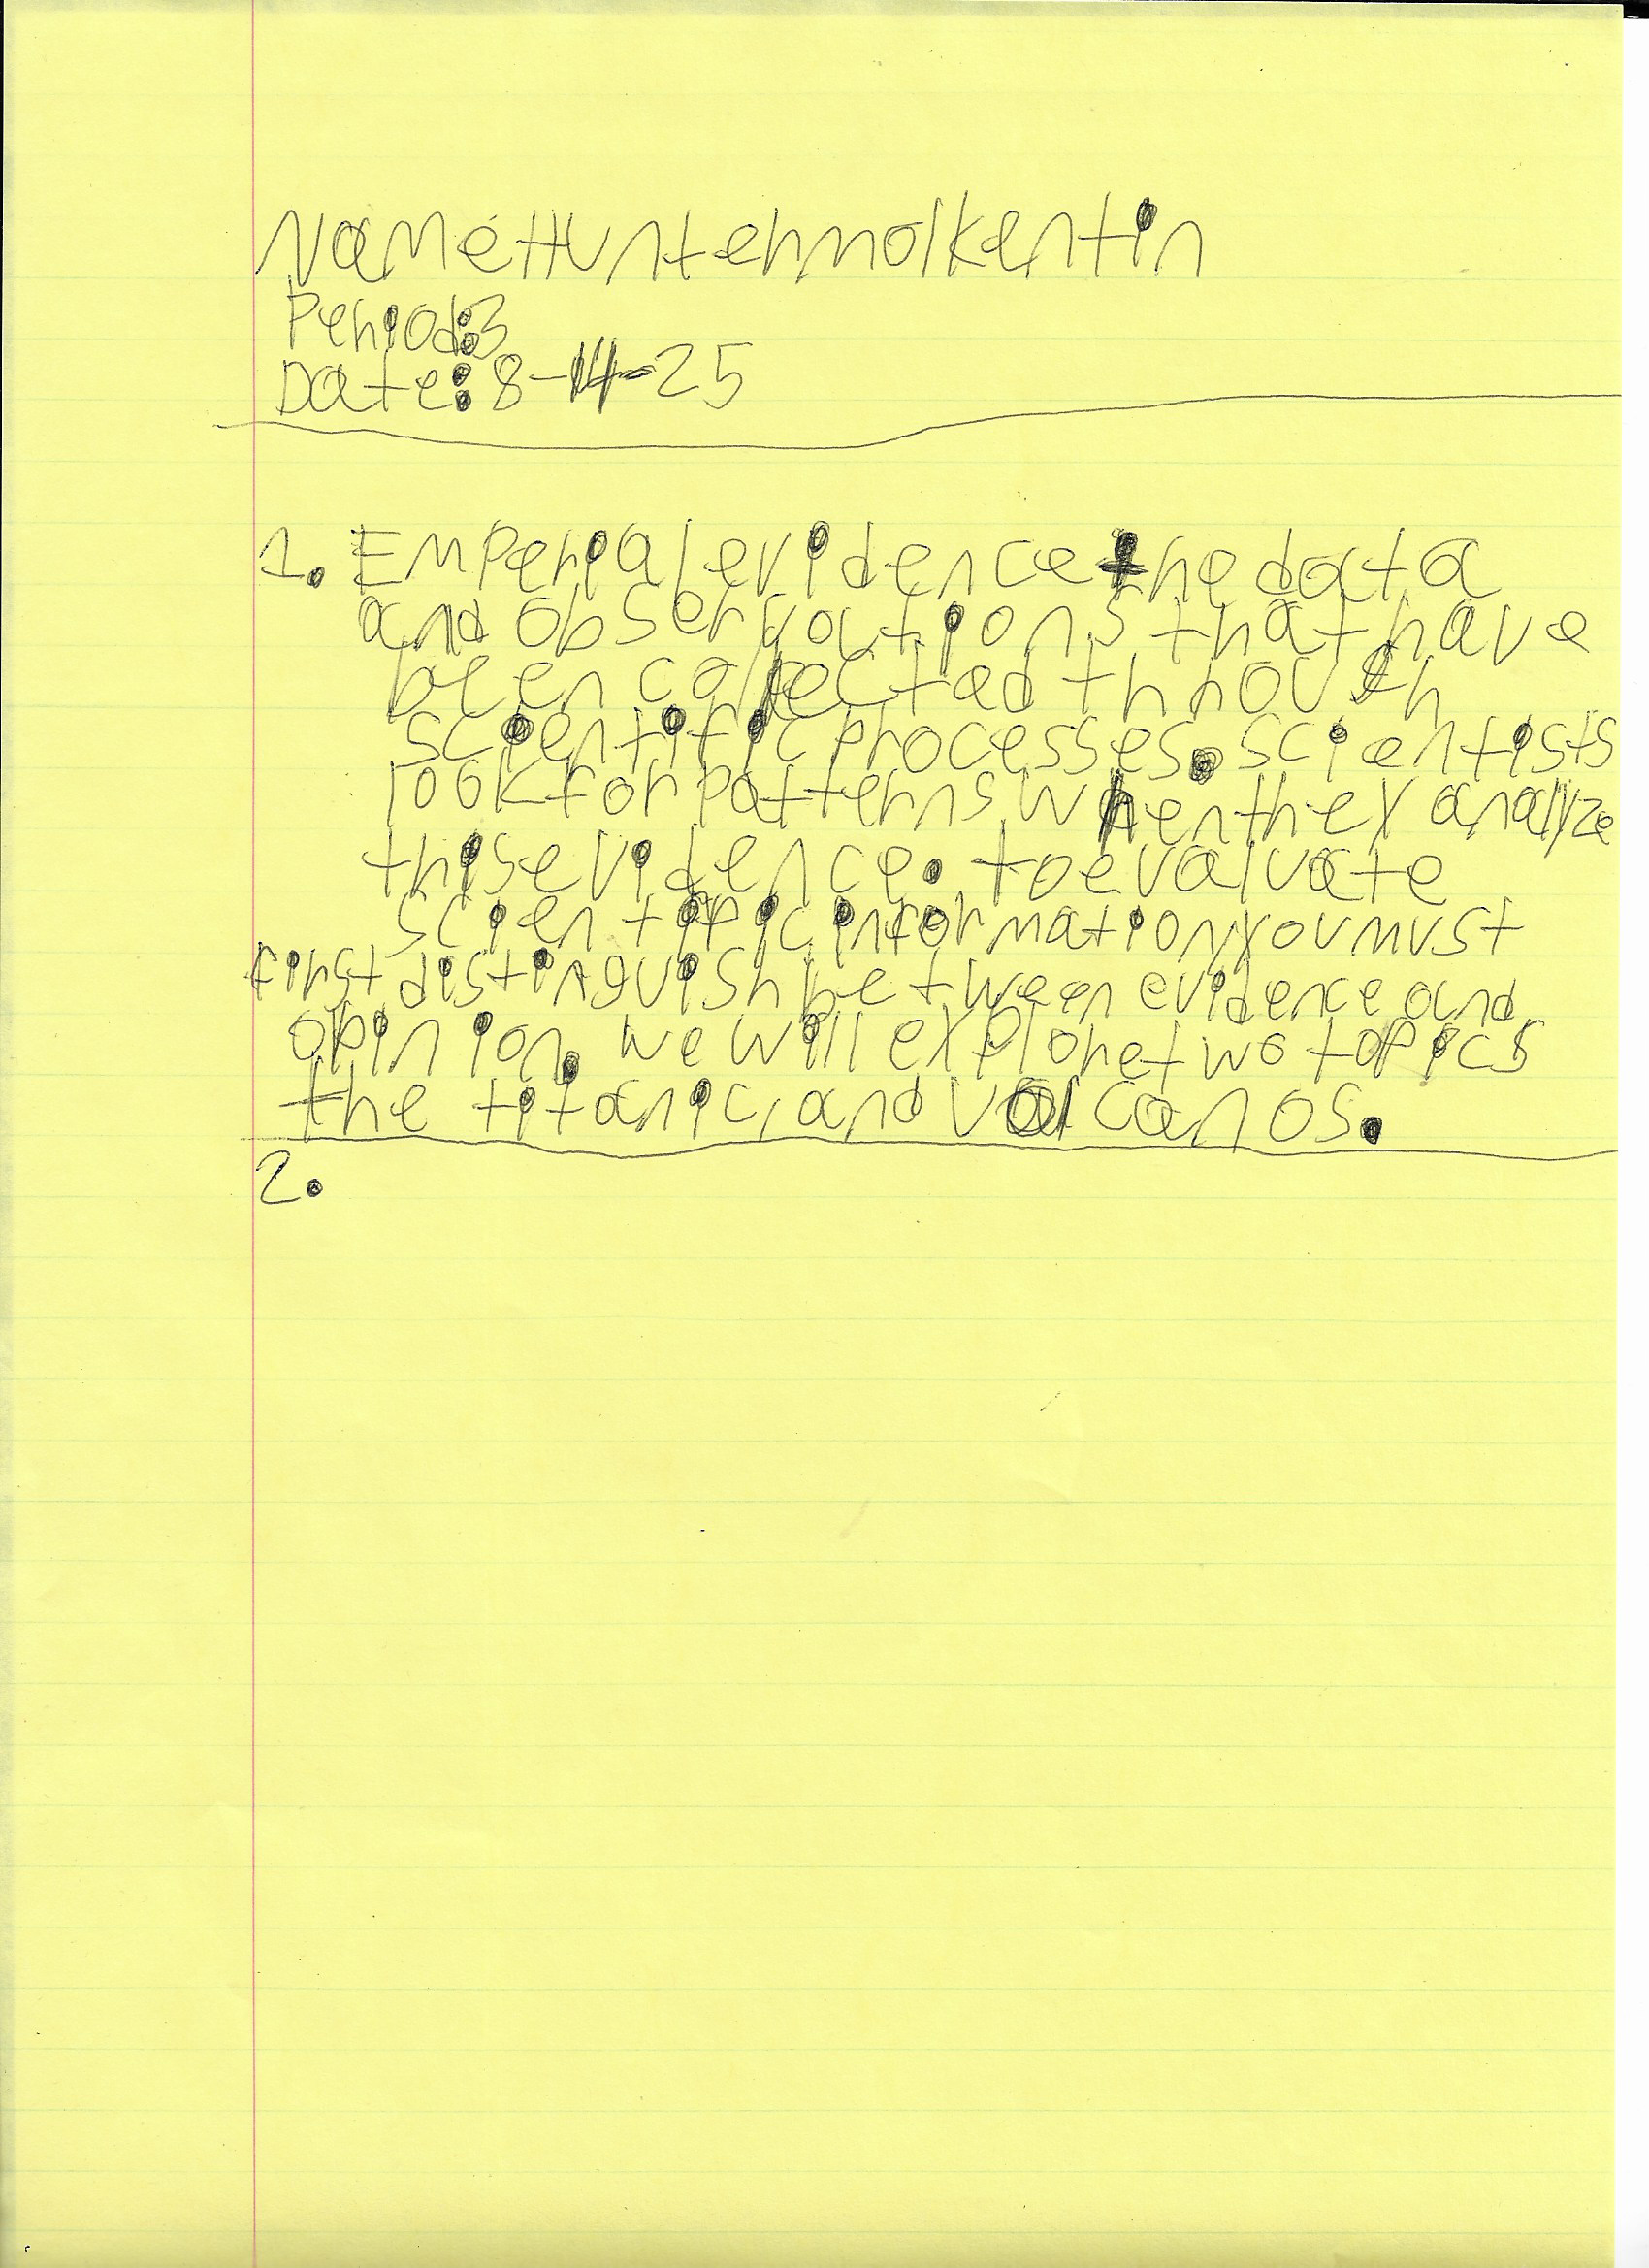 Name Hunter molkentin
Period:3
Date:8-14-25
1. Emperial evidence the data
and observations that have
been collected through
scientific processes. scientists
look for patterns when they analyze
this evidence. to evaluate
scientific information you must
first distinguish between evidence and
opinion, we will explore two topics
the titanic, and volcanos.
2.